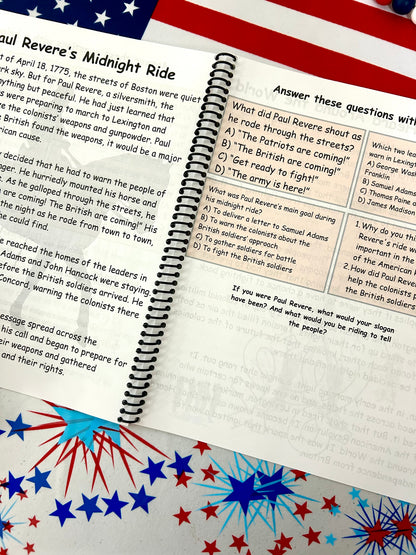 Paul Revere's Midnight Ride
t of April 18, 1775, the streets of Boston were quiet
rk sky. But for Paul Revere, a silversmith, the
ything but peaceful. He had just learned that
s were preparing to march to Lexington and
re the colonists' weapons and gunpowder. Paul
British found the weapons, it would be a major
rican cause.
decided that he had to warn the people of
ger. He hurriedly mounted his horse and
s. As he galloped through the streets, he
are coming! The British are coming!" His
the night as he rode from town to town,
he could find.
reached the homes of the leaders in
Adams and John Hancock were staying
efore the British soldiers arrived. He
Concord, warning the colonists there
essage spread across the
his call and began to prepare for
heir weapons and gathered
and their rights.
Answer these questions with
What did Paul Revere shout as
he rode through the streets?
A) "The Patriots are coming!"
B) "The British are coming!"
C) "Get ready to fight!"
D) "The army is here!"
Which two le
warn in Lexingt
A) George Wash
Franklin
B) Samuel Adams
C) Thomas Paine a
D) James Madison
What was Paul Revere's main goal during
his midnight ride?
A) To deliver a letter to Samuel Adams
B) To warn the colonists about the
British soldiers' approach
C) To gather soldiers for battle
D) To fight the British soldiers
1. Why do you th
Revere's ride is
important in the
of the American
2. How did Paul Rever
help the colonists
the British soldiers
If you were Paul Revere, what would your slogan
have been? And what would you be riding to tell
the people?